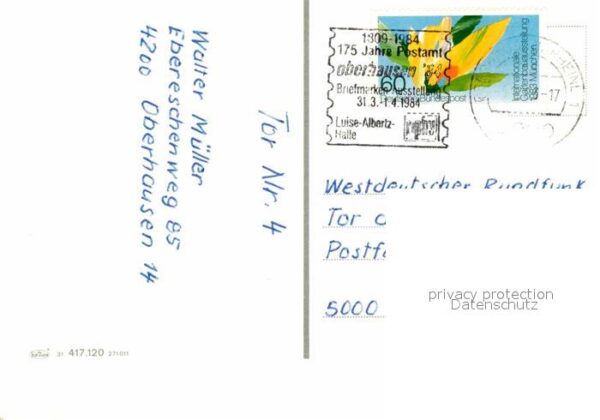 Walter Müller
Ebereschenweg 85
4200 Oberhausen 14
Tor Nr. 4
1809-1984
175 Jahre Postamt
oberhausen '84
Briefmarken-Ausstellung
31.3.-1.4.1984
Luise-Albertz-
Halle
60
Bundespost
Internationale
Gartenbauausstellung
1983 München
-17
Westdeutscher Rundfunk
Tor
Postf
5000
privacy protection
Datenschutz
31 417.120 271011